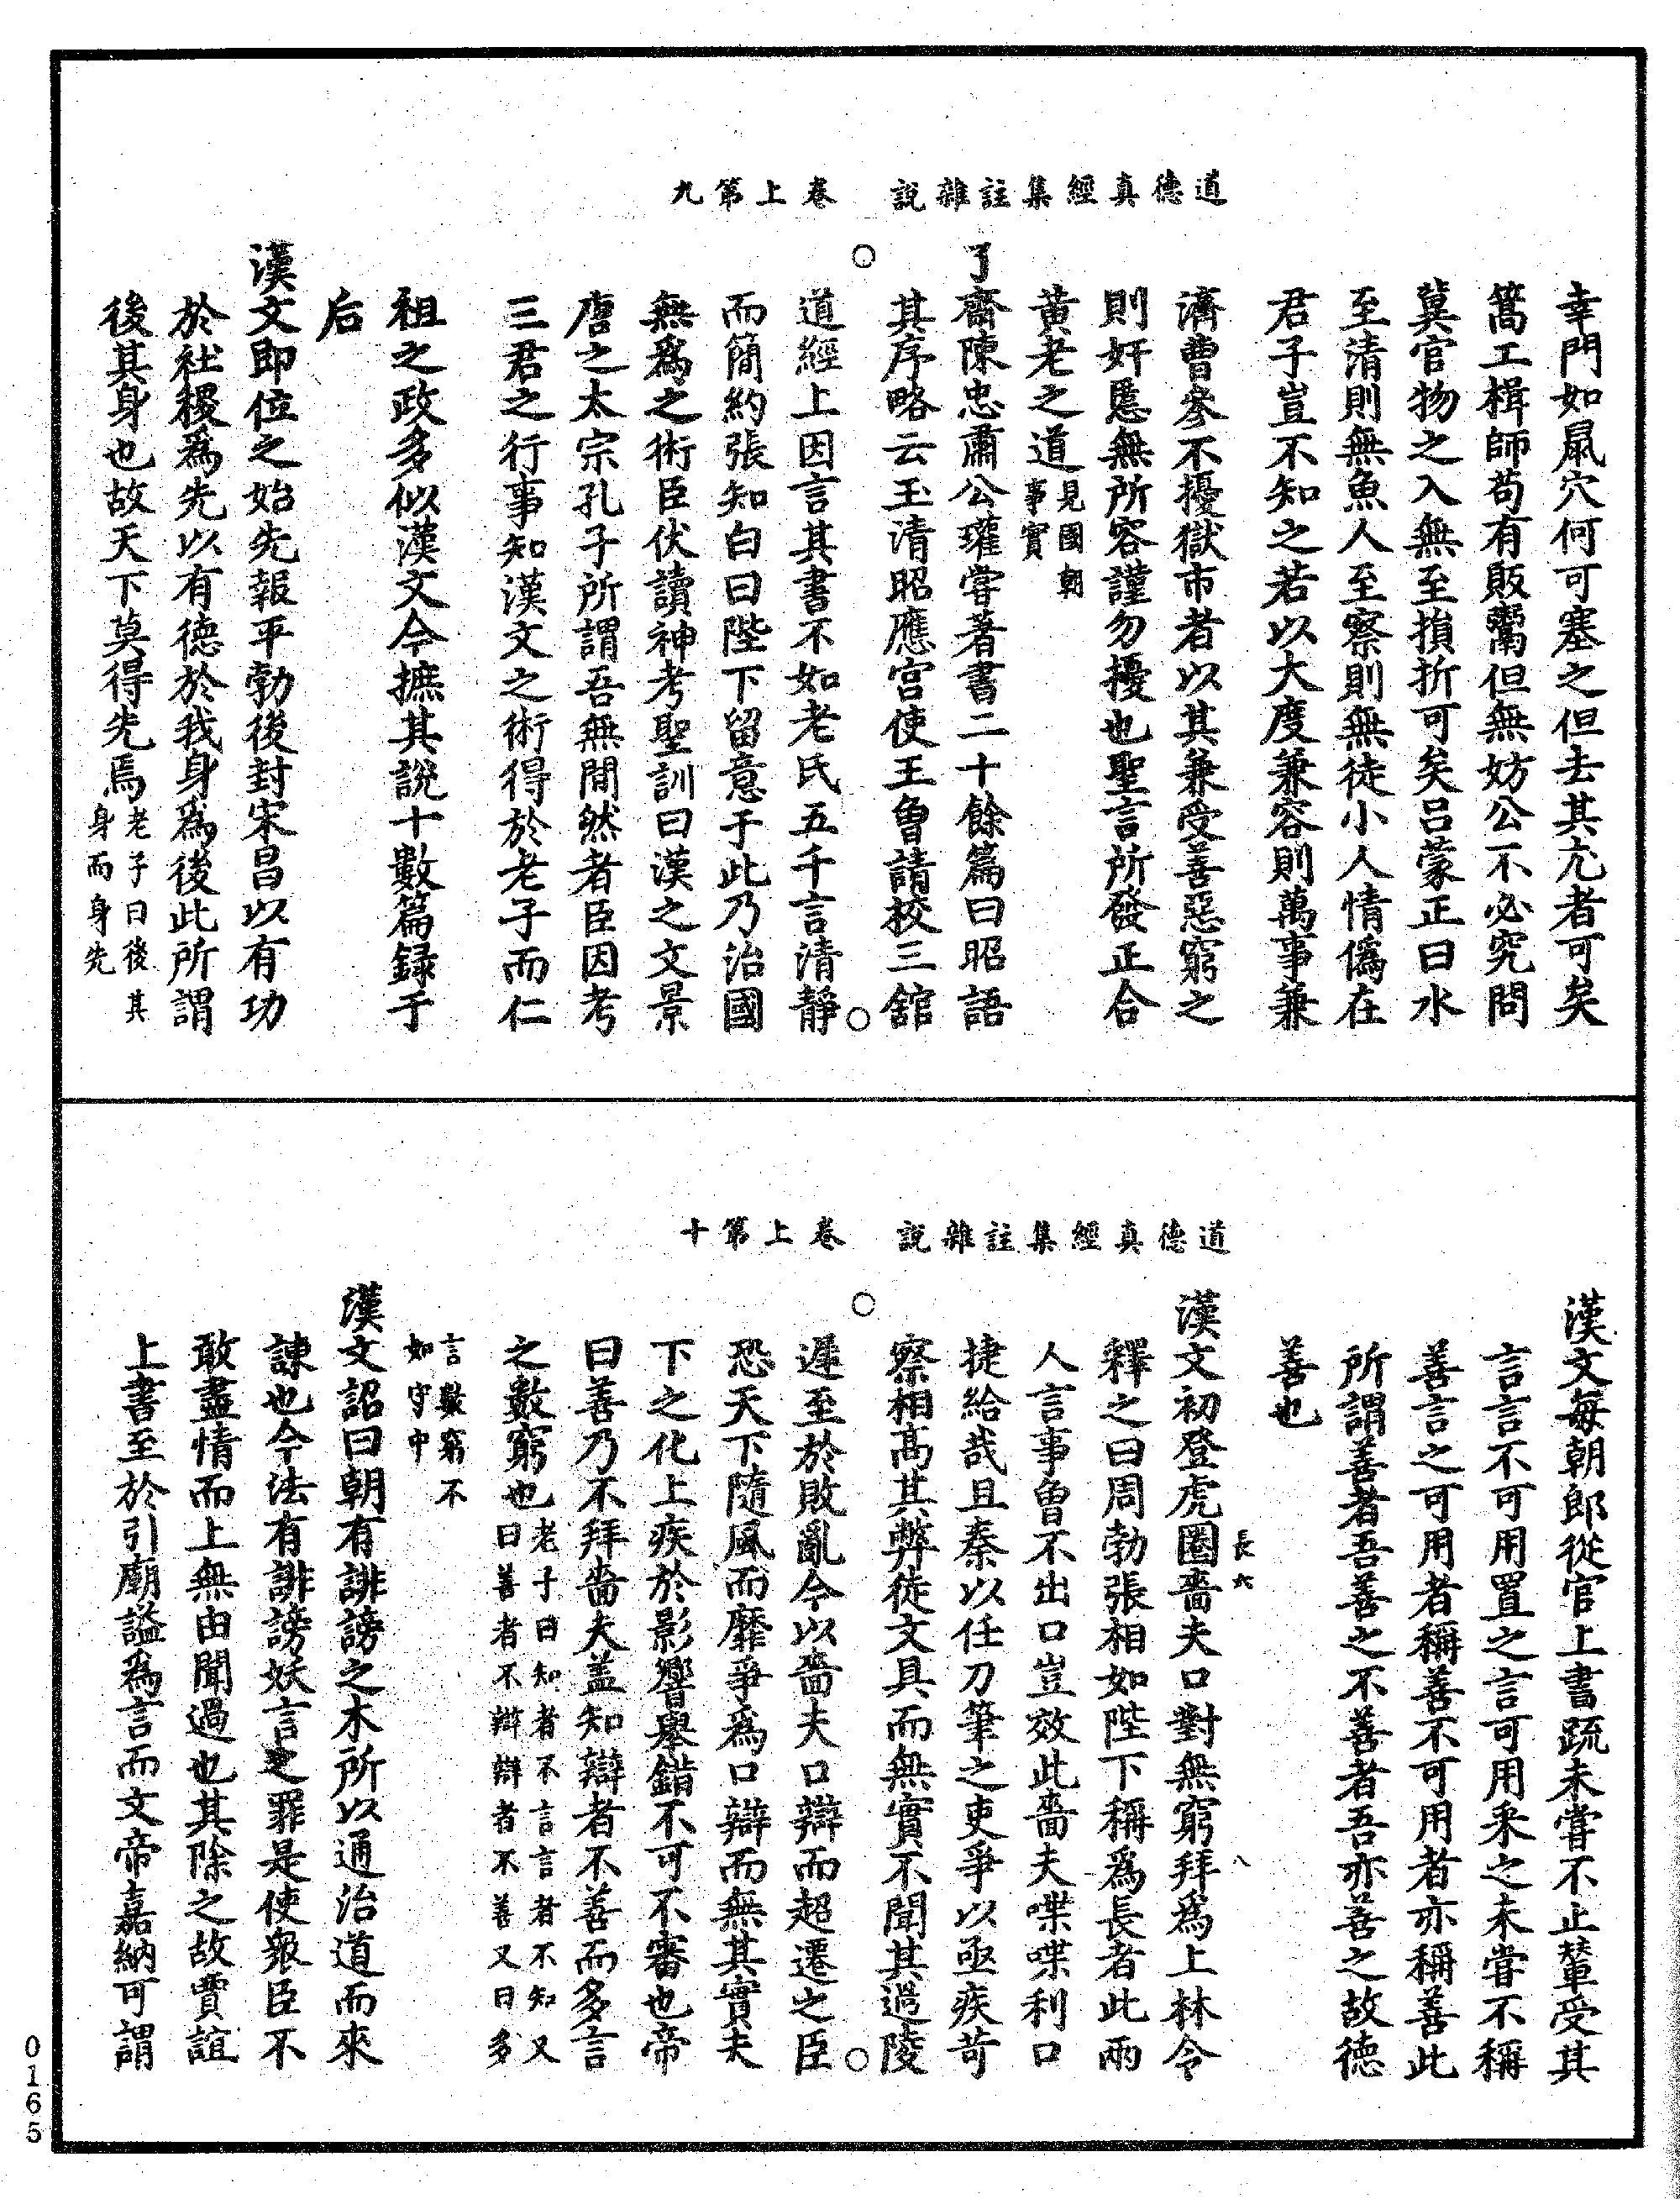 道德真經集註雜說　卷上第九
幸門如鼠穴何可塞之但去其尤者可矣
篙工楫師苟有販鬻但無妨公不必究問
冀官物之入無至損折可矣呂蒙正曰水
至清則無魚人至察則無徒小人情偽在
君子豈不知之若以大度兼容則萬事兼
濟曹參不擾獄市者以其兼受善惡窮之
則奸慝無所容謹勿擾也聖言所發正合
黃老之道見國朝事實
了齋陳忠肅公瓘嘗著書二十餘篇曰昭語
其序略云玉清昭應宮使王曾請校三舘
道經上因言其書不如老氏五千言清靜
而簡約張知白曰陛下留意于此乃治國
無為之術臣伏讀神考聖訓曰漢之文景
唐之太宗孔子所謂吾無間然者臣因考
三君之行事知漢文之術得於老子而仁
祖之政多似漢文今摭其說十數篇録于
后
漢文即位之始先報平勃後封宋昌以有功
於社稷為先以有德於我身為後此所謂
後其身也故天下莫得先焉老子曰後其身而身先
道德真經集註雜說　卷上第十
漢文每朝郎從官上書疏未嘗不止輦受其
言言不可用置之言可用采之未嘗不稱
善言之可用者稱善不可用者亦稱善此
所謂善者吾善之不善者吾亦善之故德
善也
長六
八
漢文初登虎圈嗇夫口對無窮拜為上林令
釋之曰周勃張相如陛下稱為長者此兩
人言事曾不出口豈效此嗇夫喋喋利口
捷給哉且秦以任刀筆之吏爭以亟疾苛
察相高其弊徒文具而無實不聞其過陵
遲至於敗亂今以嗇夫口辯而超遷之臣
恐天下隨風而靡爭為口辯而無其實夫
下之化上疾於影響舉錯不可不審也帝
曰善乃不拜嗇夫盖知辯者不善而多言
之數窮也老子曰知者不言言者不知又曰善者不辯辯者不善又曰多
言數窮不如守中
漢文詔曰朝有誹謗之木所以通治道而來
諫也今法有誹謗妖言之罪是使衆臣不
敢盡情而上無由聞過也其除之故賈誼
上書至於引廟謚為言而文帝嘉納可謂
0165